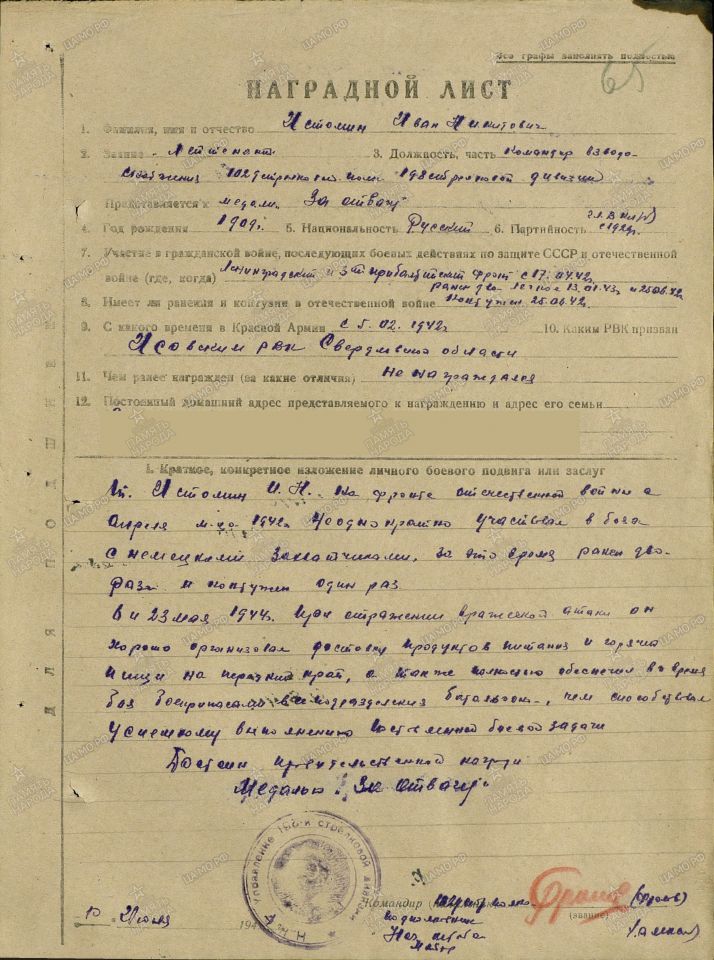 Все графы заполнять полностью
65
НАГРАДНОЙ ЛИСТ
1. Фамилия, имя и отчество Истомин Иван Никитович
2. Звание Лейтенант 3. Должность, часть Командир взвода
снабжения 1027 стрелковой дивизии
Представляется к медали "За отвагу"
4. Год рождения 1909г. 5. Национальность Русский 6. Партийность чл. ВКП(б)
7. Участие в гражданской войне, последующих боевых действиях по защите СССР и отечественной
войне (где, когда) Ленинградский и 3й прибалтийский фронт с 17.04.42
8. Имеет ли ранения и контузии в отечественной войне ранен два легкое 13.01.43 и 25.06.42
контужен 25.06.42г.
9. С какого времени в Красной Армии с 5.02.1942г 10. Каким РВК призван
Исовским РВК Свердловской области
11. Чем ранее награжден (за какие отличия) Не награждался
12. Постоянный домашний адрес представляемого к награждению и адрес его семьи
I. Краткое, конкретное изложение личного боевого подвига или заслуг
т. Истомин И.Н. На фронте отечественной войны с
Апреля м-ца 1942г неоднократно участвовал в боях
с немецкими захватчиками, за это время ранен два
раза и контужен один раз.
23 мая 1944г. При отражении вражеской атаки он
хорошо организовал доставку продуктов питания и горячей
пищи на передний край, а также полностью обеспечил во время
боя боеприпасами все подразделения батальона, чем способствовал
успешному выполнению поставленной боевой задачи
Достоин правительственной награды
Медалью "За отвагу"
Командир полка
подполковник
Нач. штаба
Майор
(звание)
194
июня
Управление 198-й стрелковой дивизии
ДЛЯ ПОДШИВКИ
ПАМЯТЬ НАРОДА
ЦАМО.РФ